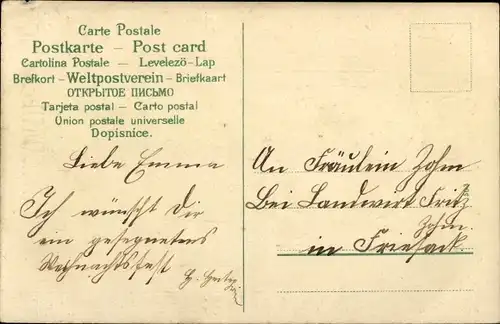 Carte Postale
Postkarte – Post card
Cartolina Postale – Levelezö-Lap
Brefkort – Weltpostverein – Briefkaart
ОТКРЫТОЕ ПИСЬМО
Tarjeta postal – Carto postal
Union postale universelle
Dopisnice.
Liebe Emma
Ich wünscht Dir
ein gesegnetens
Weihnachtsfest
An Fräulein Zohm
Bei Landwirt Fritz
Zohm.
in Friesack.